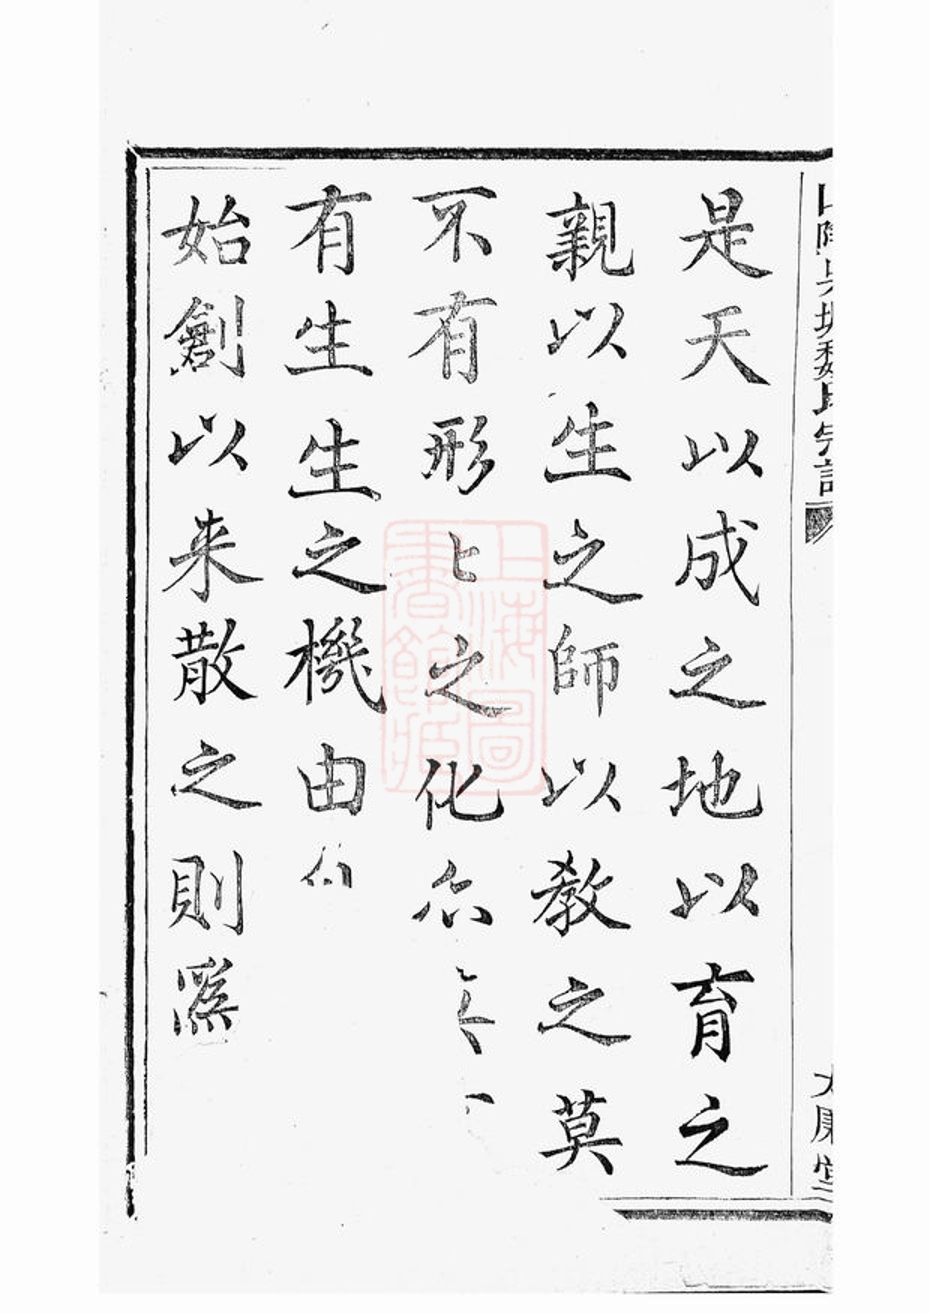 是天以成之地以育之
親以生之師以教之莫
不有形〻之化尒
有生生之機由
始創以来散之則
上海圖書館藏